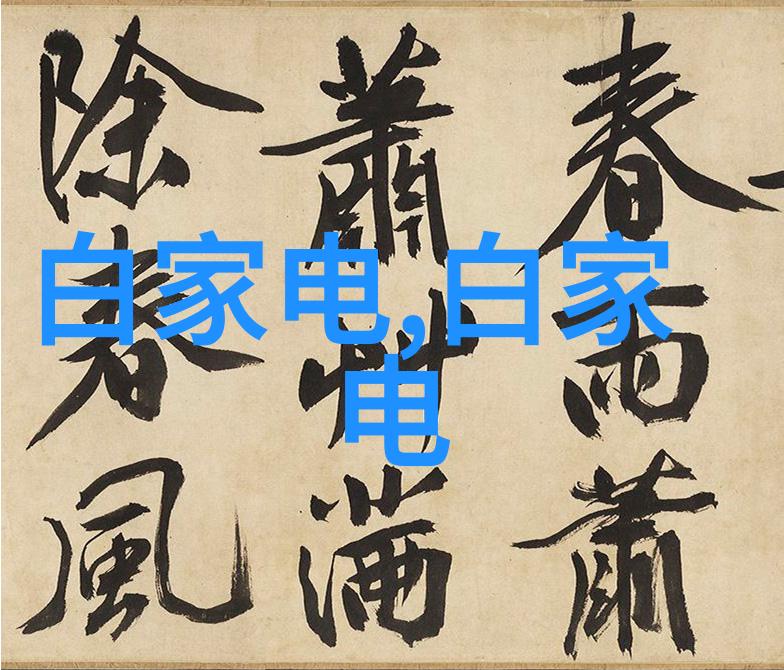 春雨蕭
蕭艸滿
除春風
白家电,白家
电